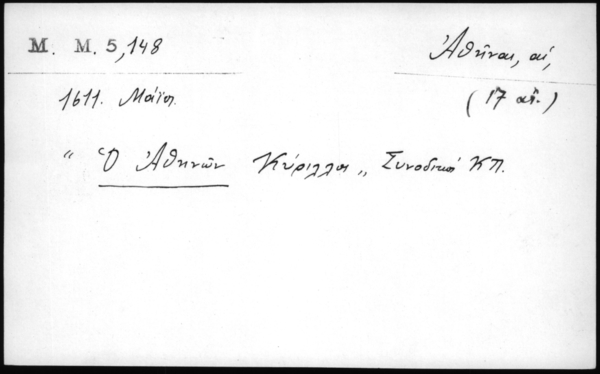 M. M. 5,148
Ἀθῆναι, αἱ,
1611. Μάϊος.
(17 αἰ.)
" Ὁ Ἀθηνῶν Κύριλλος " Συνοδικὸ ΚΠ.